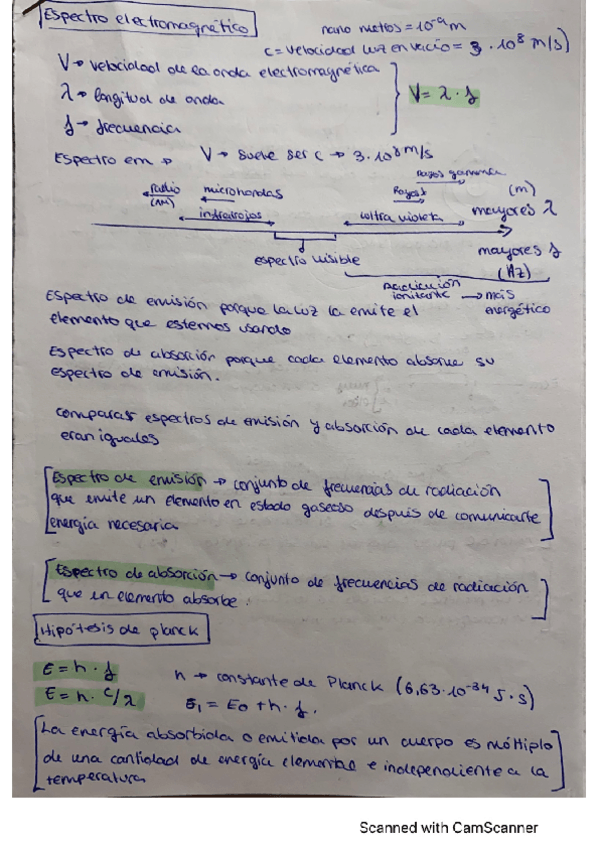 Espectro electromagnético
nano metos = 10⁻⁹ m
c = velocidad luz en vacío = 3 · 10⁸ m/s)
V → velocidad de la onda electromagnética
λ → longitud de onda
f → frecuencia
V = λ · f
Espectro em → V → suele ser c → 3 · 10⁸ m/s
rayos gamma
radio microhondas Rayos X (m)
(AM) infrarojos ultra violeta mayores λ
espectro visible mayores f
(Hz)
Radiación ionizante → más energético
Espectro de emisión porque la luz la emite el
elemento que estemos usando
Espectro de absorción porque cada elemento absorve su
espectro de emisión.
comparar espectros de emisión y absorción de cada elemento
eran iguales
Espectro de emisión → conjunto de frecuencias de radiación
que emite un elemento en estado gaseoso después de comunicarle
energía necesaria
Espectro de absorción → conjunto de frecuencias de radiación
que un elemento absorbe.
Hipótesis de planck
E = h · f
h → constante de Planck (6,63 · 10⁻³⁴ J · s)
E = h · c/λ
E₁ = E₀ + h · f.
La energía absorbida o emitida por un cuerpo es múltiplo
de una cantidad de energía elemental e independiente a la
temperatura
Scanned with CamScanner